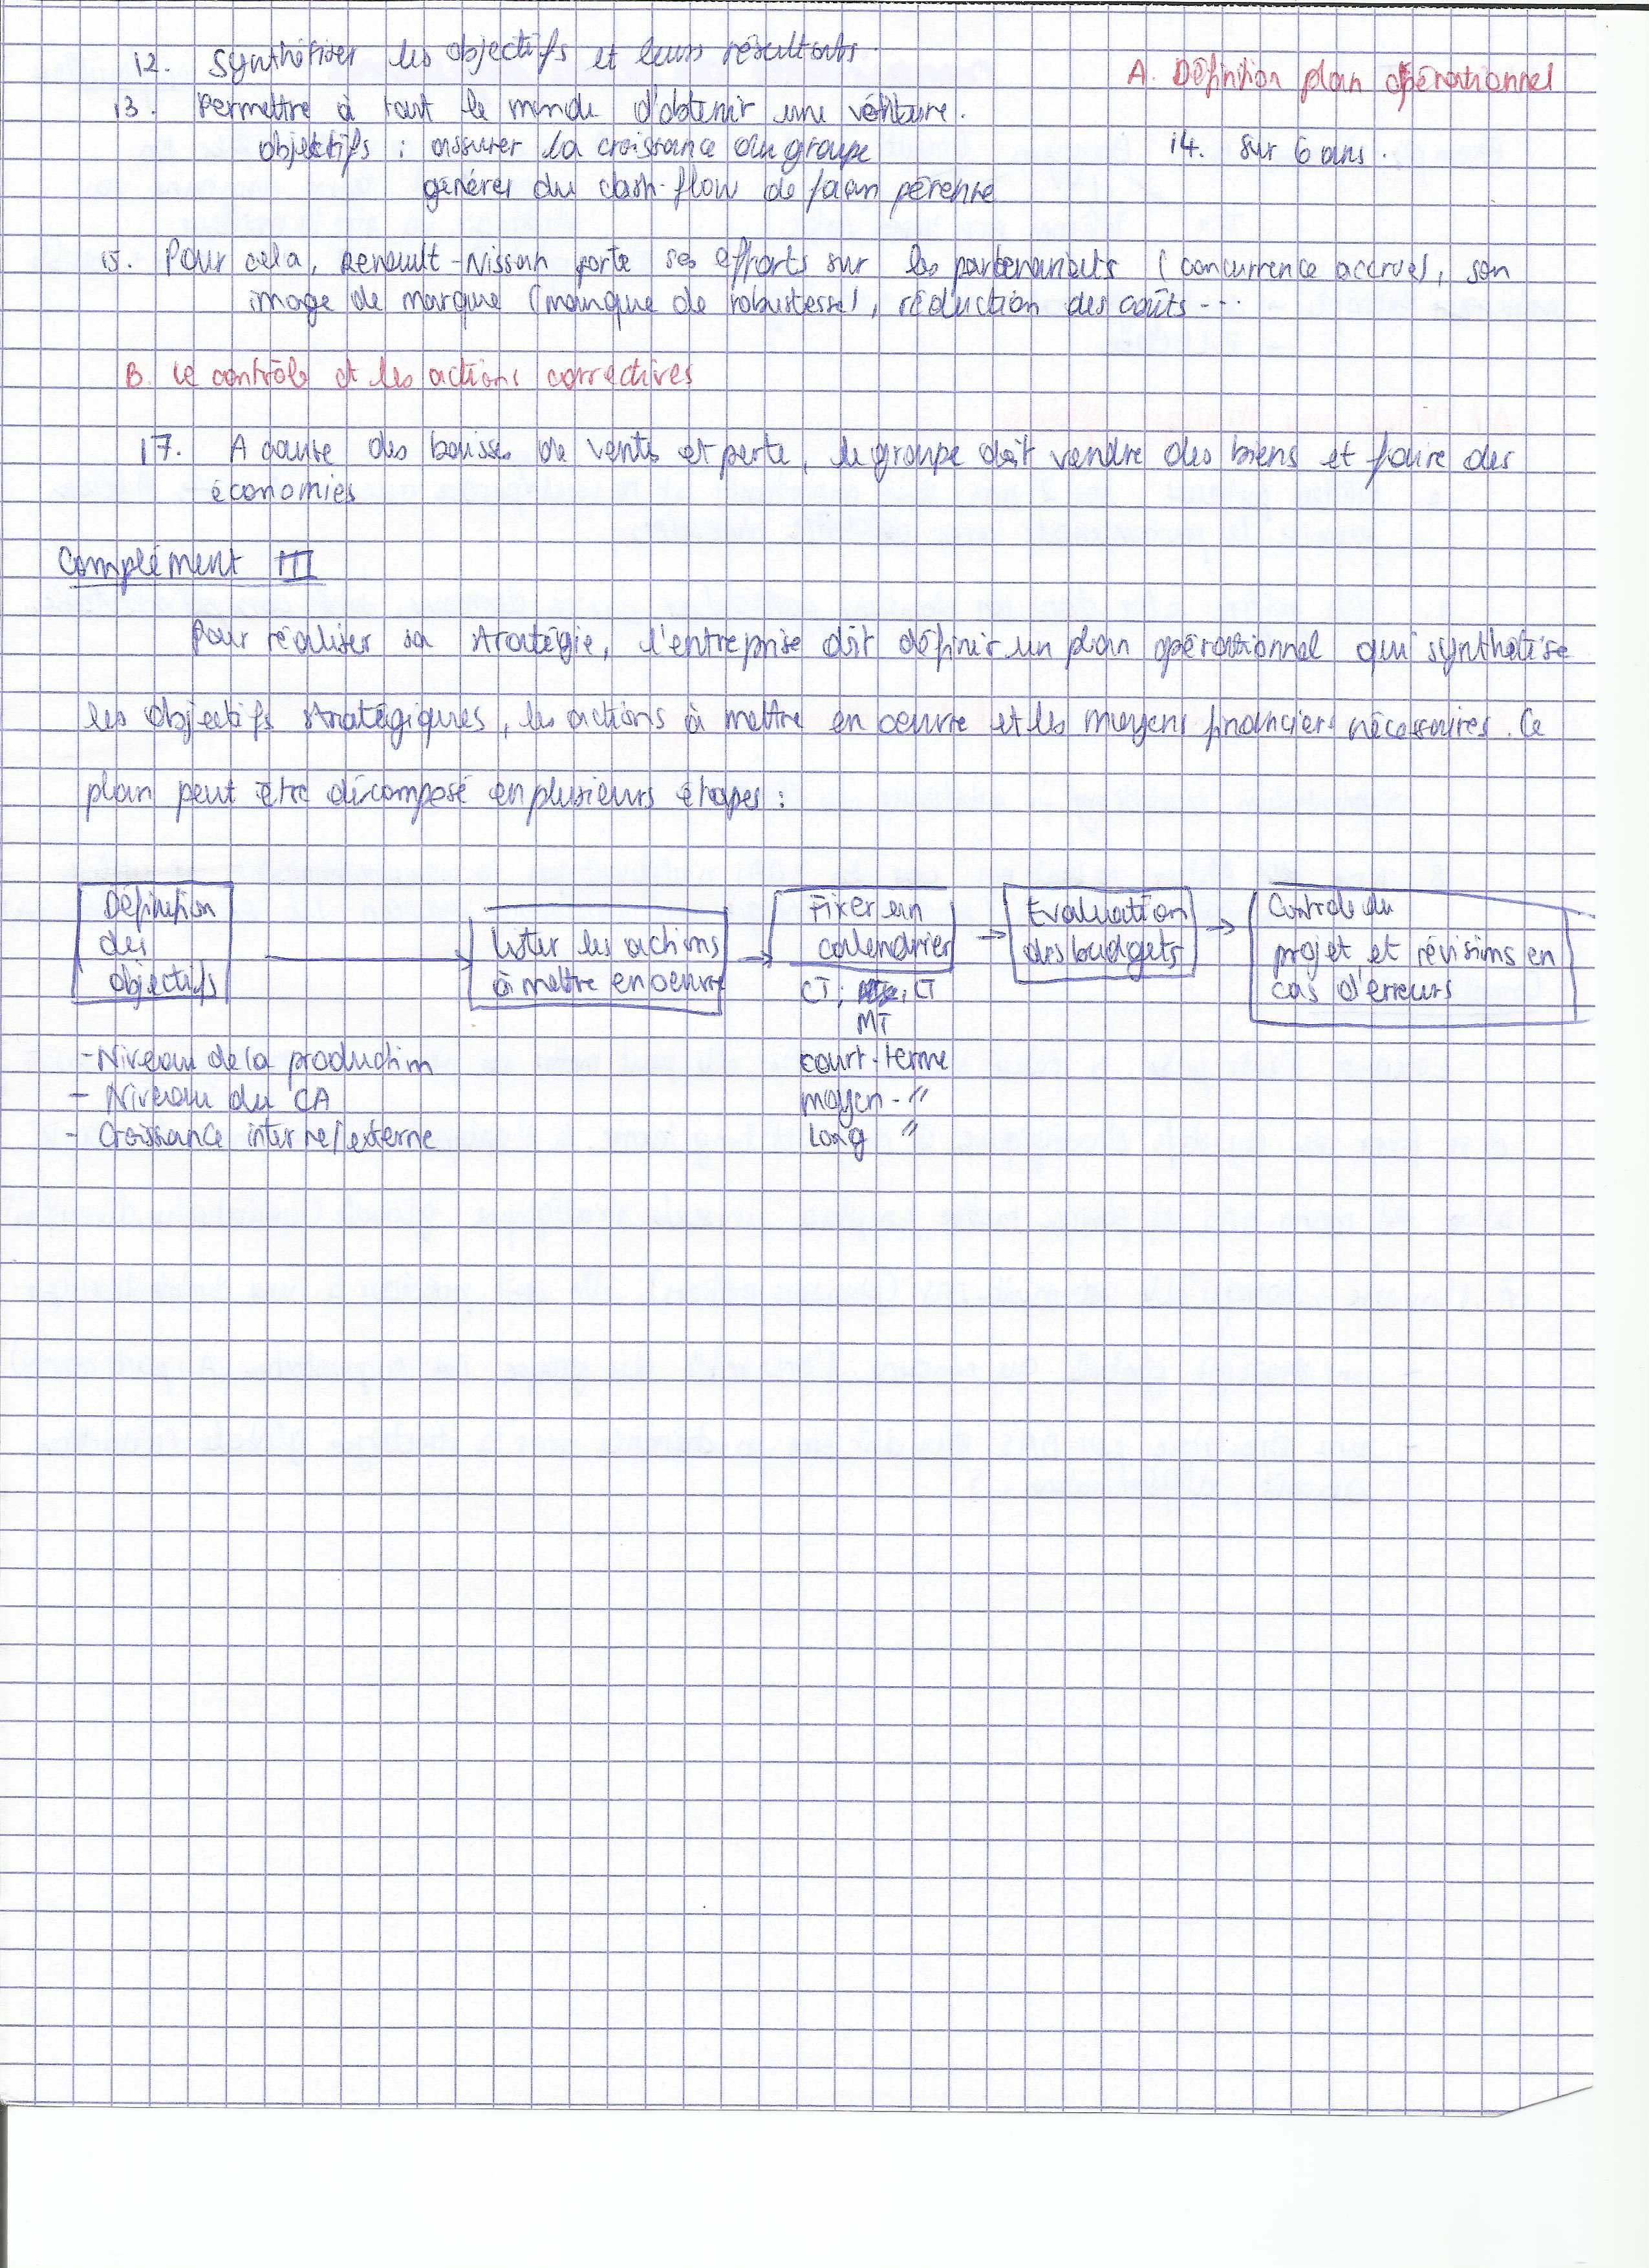 12. Synthétiser les objectifs et leurs résultats.
A. Définition plan opérationnel
13. Permettre à tout le monde d'obtenir une voiture.
objectifs : assurer la croissance du groupe
14. Sur 6 ans.
générer du cash-flow de façon pérenne
15. Pour cela, Renault-Nissan porte ses efforts sur les partenariats (concurrence accrue), son
image de marque (manque de robustesse), réduction des coûts ...
B. Le contrôle et les actions correctives
17. A cause des baisses de vente et perte, le groupe doit vendre des biens et faire des
économies
Complément III
Pour réaliser sa stratégie, l'entreprise doit définir un plan opérationnel qui synthétise
les objectifs stratégiques, les actions à mettre en oeuvre et les moyens financiers nécessaires. Ce
plan peut être décomposé en plusieurs étapes :
Définition
des
objectifs
Lister les actions
à mettre en oeuvre
Fixer un
calendrier
CT; CT
MT
court-terme
moyen - "
Long "
Evaluation
des budgets
Controle du
projet et révisions en
cas d'erreurs
- Niveau de la production
- Niveau du CA
- Croissance interne/externe